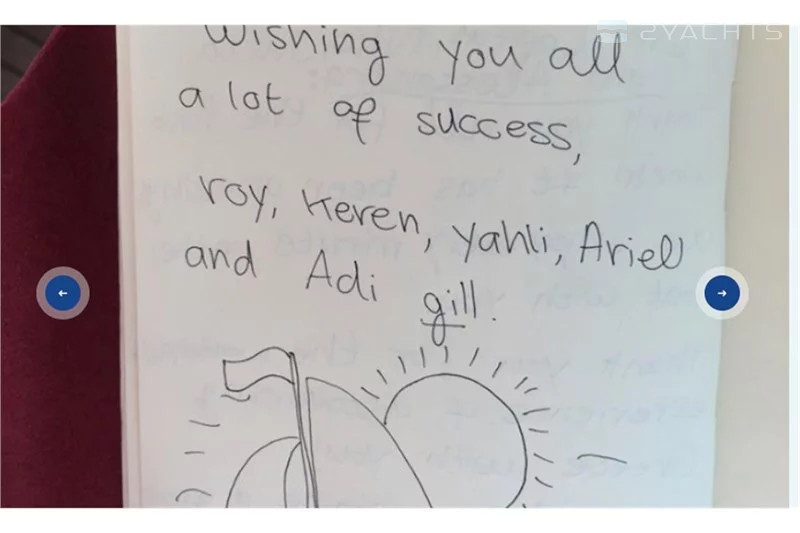 2YACHTS
Wishing you all
a lot of success,
roy, Keren, Yahli, Ariel
and Adi gill.